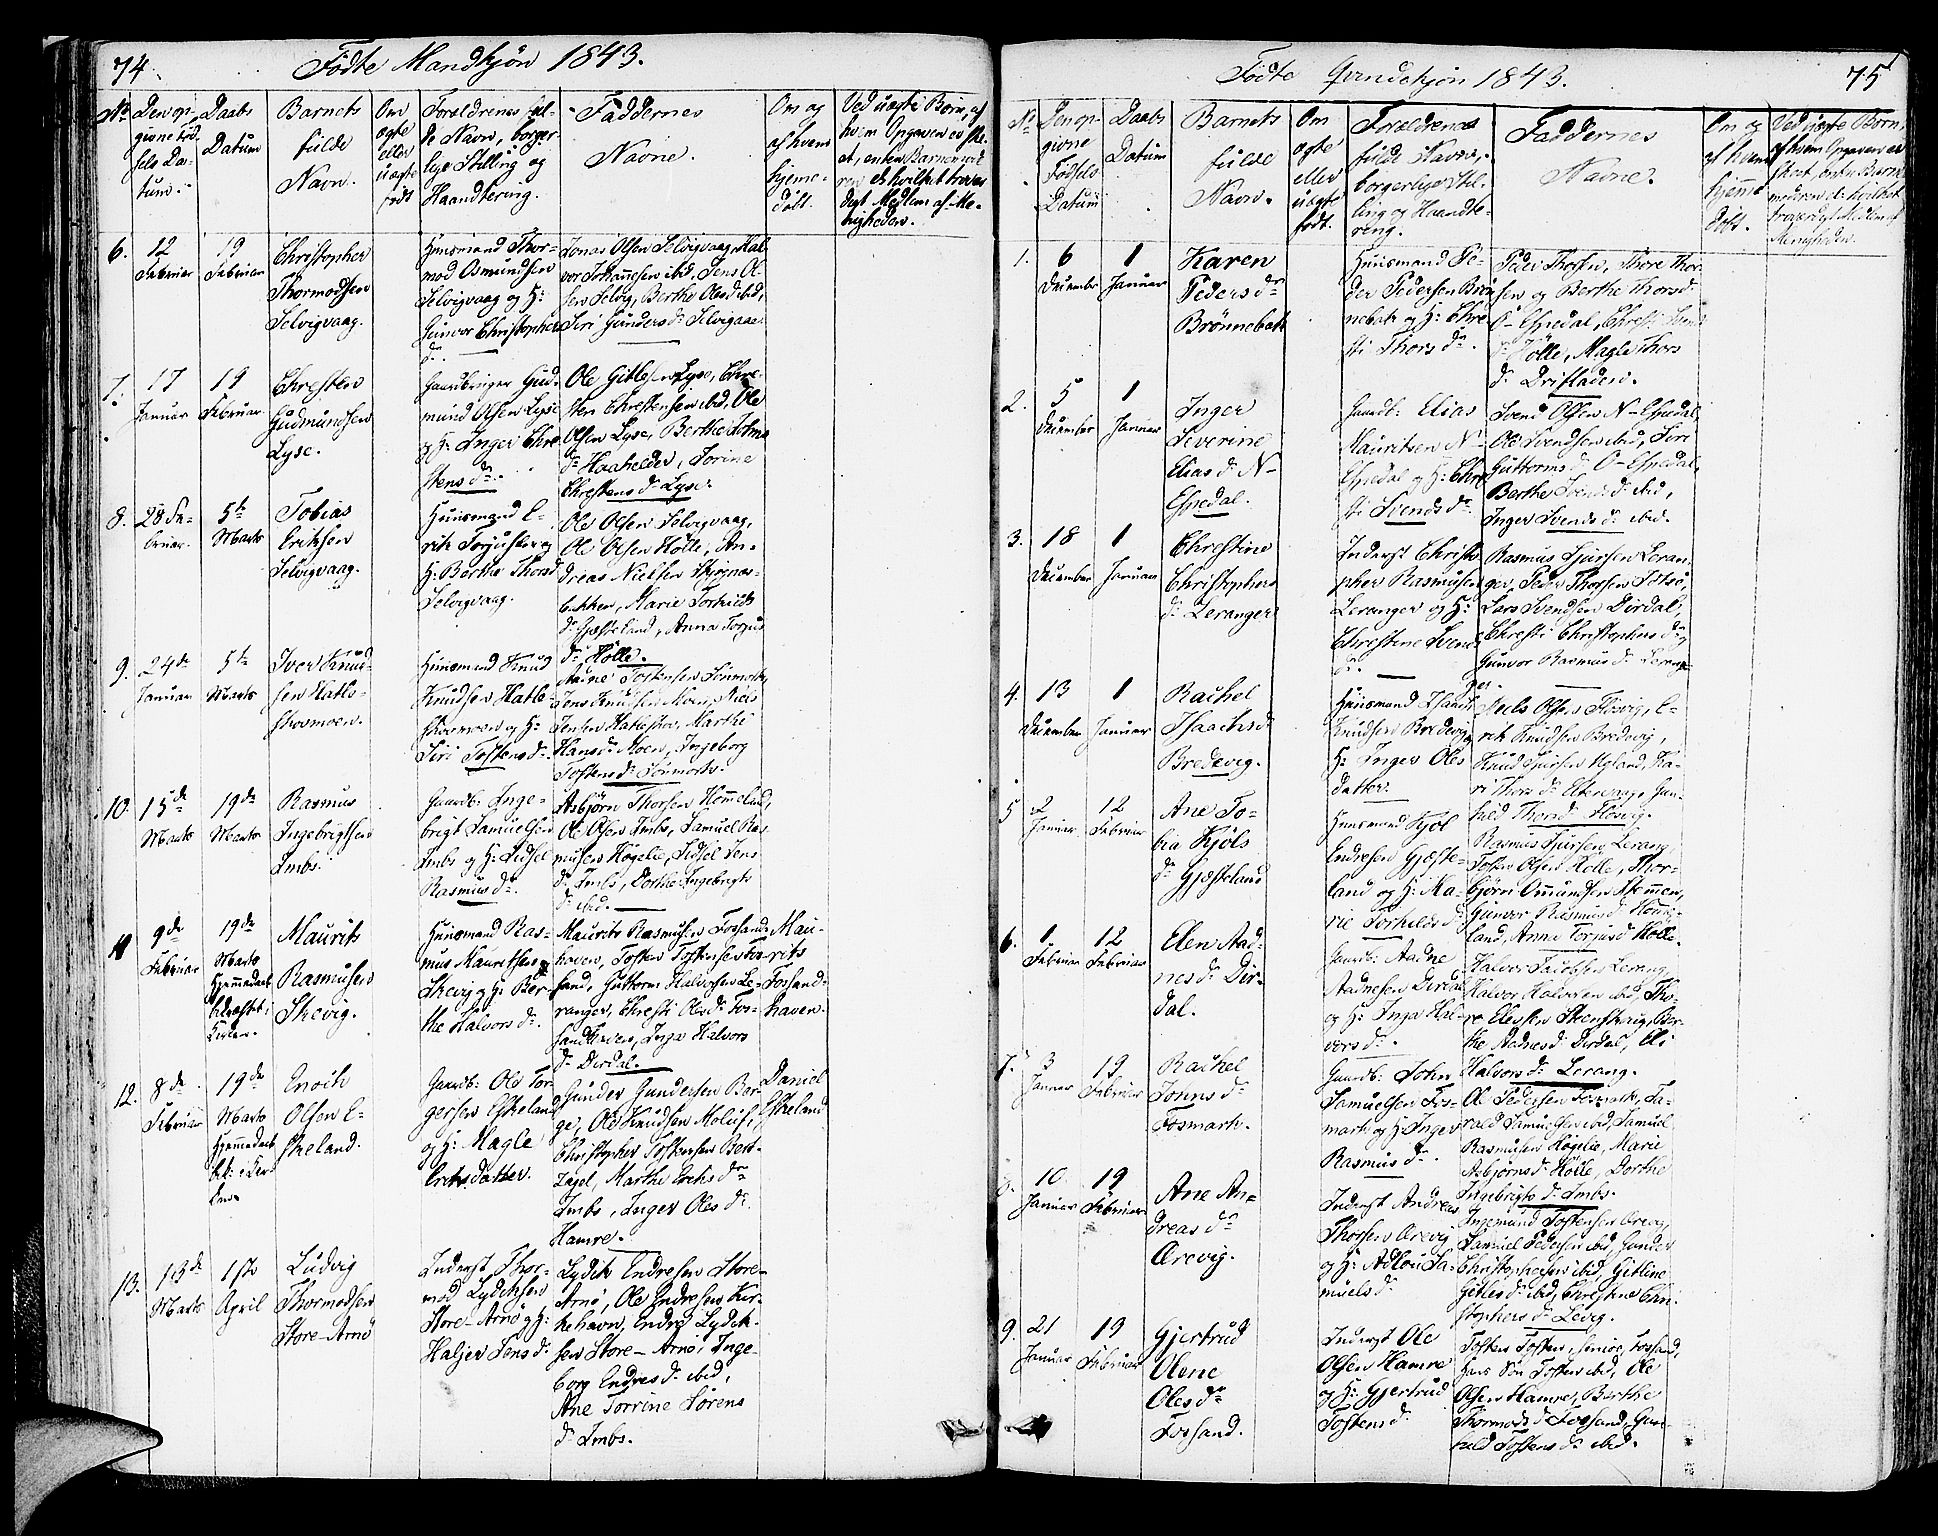 74.
Fødte Mandkjøn 1843.
No
Den op-
givne Fød-
sels Da-
tum.
Daabs
Datum
Barnets
fulde
Navn.
Om
ægte
eller
uægte
født
Forældrenes ful-
de Navn, borger-
lige Stilling og
Haandtering.
Faddernes
Navne.
Om og
af hvem
hjeme-
døbt.
Ved uægte Børn, af
hvem Opgaven er ske-
et, enten Barnemod-
ren el. hvilket trovær-
digt Medlem af Me-
nigheden.
6.
12
Februar
19
Februar
Christopher
Thormodsen
Selvigvaag.
Huusmand Thor-
mod Osmundsen
Selvigvaag og H:
Gunvor Christophers
dr.
Jonas Olsen Selvigvaag, Hal-
vor Johannesen ibid, Jens Ol-
sen Selvig, Berthe Olesd ibid,
Siri Gunders dr Selvigvaag.
7.
17
Januar
19
Februar
Chresten
Gudmundsen
Lyse.
Gaardbruger Gud-
mund Olsen Lyse
og H: Inger Chre-
stens dr.
Ole Gitlesen Lyse, Chre-
sten Chrestensen ibid, Ole
Olsen Lyse, Berthe
dr Haaheller, Sorine
Chrestens dr Lyse.
8.
28 Fe-
bruar.
5te
Marts
Tobias
Eriksen
Selvigvaag.
Huusmand E-
rik Torjussen og
H: Berthe Thorsd
Selvigvaag.
Ole Olsen Selvigvaag,
Ole Olsen Hølle, An-
dreas Nielsen
bakken, Marie Torkilds
dr Gjæsteland, Anna Torjus
dr Hølle.
9.
24de
Januar
5te
Marts
Iver Knud-
sen Hatle-
skovmoen.
Huusmand Knud
Knudsen Hatle-
skovmoen og H:
Siri Tostens dr.
Tostensen Lønmork,
Jens Knudsen Moen, Niels
Jensen Hatleskov, Marthe
Hansdr Moen, Ingeborg
Tostens dr Lønmork.
10.
15de
Marts
19de
Marts
Rasmus
Ingebrigtsen
Imbs.
Gaardb: Inge-
brigt Samuelsen
Imbs og H: Sidsel
Rasmus dr.
Asbjørn Thorsen Hommeland,
Ole Olsen Imbs, Samuel Ras-
musen Høgelie, Sidsel Jens
dr Imbs, Dorthe Ingebrigts
dr ibid.
11
9de
Februar
19de
Marts
Hjemmedaab
bekræftet i
Kirken.
Maurits
Rasmusen
Skevig.
Huusmand Ras-
mus Mauritsen
Skevig og H: Ber-
the Halvors dr.
Maurits Rasmusen Fossand-
haven, Tosten Tostensen Fos-
sand, Guttorm Halvorsen Le-
ranger, Chresti Oles dr Fos-
sandhaven, Inga Halvors
dr Dirdal.
Mau-
rits
Fossand-
haven.
12.
8de
Februar
19de
Marts
Hjemmedaab
bek: i Kir-
ken.
Enoch
Olsen E-
skeland.
Gaardb: Ole Tor-
gersen Eskeland
og H: Magle
Eriksdatter.
Gunder Gundersen Ber-
ge, Ole Knudsen
Christopher Tostensen Bert-
Marthe Eriks dr
Imbs, Inger Oles dr
Hamre.
Daniel
Eskeland
13.
13de
Marts
1ste
April
Ludvig
Thormodsen
Store-Arnø
Inderst Thor-
mod Lydiksen
Store-Arnø og H:
Jens dr
Lydik Endresen Store-
Arnø, Ole Endresen Kir-
kehavn, Endre Lydik-
sen Store-Arnø, Inge-
borg Endres dr ibid,
Ane Torrine Sørens
dr Imbs.
75
Fødte Qvindekjøn 1843.
No
Den op-
givne
Fødsels
Datum
Daabs
Datum
Barnets
fulde
Navn.
Om
ægte
eller
uægte
født.
Forældrenes
fulde Navn,
borgerlige Stil-
ling og Haandte-
ring.
Faddernes
Navne.
Om og
af hvem
hjemme
døbt.
Ved uægte Børn,
af hvem Opgaven er
skeet, enten Barne-
moderen el. hvilket
troværdigt Medlem af
Menigheden.
1.
6
December
1
Januar
Karen
Peders dr
Brønnebak
Huusmand Pe-
der Pedersen Brøn-
nebak og H: Chre-
sti Thors dr.
Peder Thorsen, Thore Thor-
sen og Berthe Thorsd
O-Espedal, Chresti Svends
dr Hølle, Magle Thors
dr Dritladen.
2.
5
December
1
Januar
Inger
Severine
Elias dr N-
Espedal.
Gaardb: Elias
Mauritsen N-
Espedal og H: Chre-
sti Svends dr.
Svend Olsen N-Espedal,
Ole Svendsen ibid, Siri
Guttorms dr O-Espedal,
Berthe Svends dr ibid,
Inger Svends dr ibid.
3.
18
December
1
Januar
Chrestine
Christophers
dr Leranger
Inderst Christo-
pher Rasmusen
Leranger og H:
Chrestine Svends
dr.
Rasmus Sjursen Leran-
ger, Peder Thorsen
Lars Svendsen Dirdal,
Chresti Christophers dr og
Gunvor Rasmus dr Leran-
ger.
4.
13
December
1
Januar
Rachel
Isaachs dr
Bredevig.
Huusmand Isaach
Knudsen Bredevig
H: Inger Oles
datter.
Niels Olsen Fløsvig, E-
rik Knudsen Bredevig,
Knud Sjursen Nyland, Ka-
ri Thors dr Eltervaag, Gun-
hild Thorsd Fløsvig.
5
2
Januar
12
Februar
Ane To-
bia Kjøls
dr Gjæsteland
Huusmand Kjøl
Endresen Gjæste-
land og H: Ma-
rie Torkilds dr
Rasmus Sjursen Lerang,
Tosten Olsen Hølle, Thor-
bjørn Omundsen
Gunvor Rasmus dr
land, Anna Torjus dr Hølle.
6.
1
Februar
12
Februar
Elen Aad-
nes dr Dir-
dal.
Gaardb: Aadne
Aadnesen Dirdal
og H: Inga Hal-
vors dr.
Halvor Jacobsen Lerang,
Halvor Halvorsen ibid, Tho-
re Elessen Ber-
the Aadnes dr Dirdal, Eli
Halvors dr Lerang.
7.
3
Januar
19
Februar
Rachel
Johns dr
Fosmark.
Gaardb: John
Samuelsen Fos-
mark og H: Inger
Rasmus dr.
Ole Pedersen Fosmark, Ta-
rald Samuelsen ibid, Samuel
Rasmusen Høgelie, Marie
Asbjørns dr Hølle, Dorthe
Ingebrigts dr Imbs.
8.
10
Januar
19
Februar
Ane An-
dreas dr
Ørevig.
Inderst Andreas
Thorsen Ørevig
og H: Sa-
muels dr
Ingemund Tostensen Ørevig,
Samuel Pedersen ibid, Gunder
Christophersen ibid, Gitline
Gitles dr ibid, Chrestine Chri-
stophers dr Levig.
9.
21
Januar
19
Februar
Gjertrud
Olene
Oles dr
Fossand.
Inderst Ole
Olsen Hamre
og H: Gjertrud
Tostens dr
Tosten Tosten, senior, Fossand,
Hans Søn Tosten ibid, Ole
Olsen Hamre, Berthe
Thormods dr Fossand, Gun-
hild Tostens dr ibid.